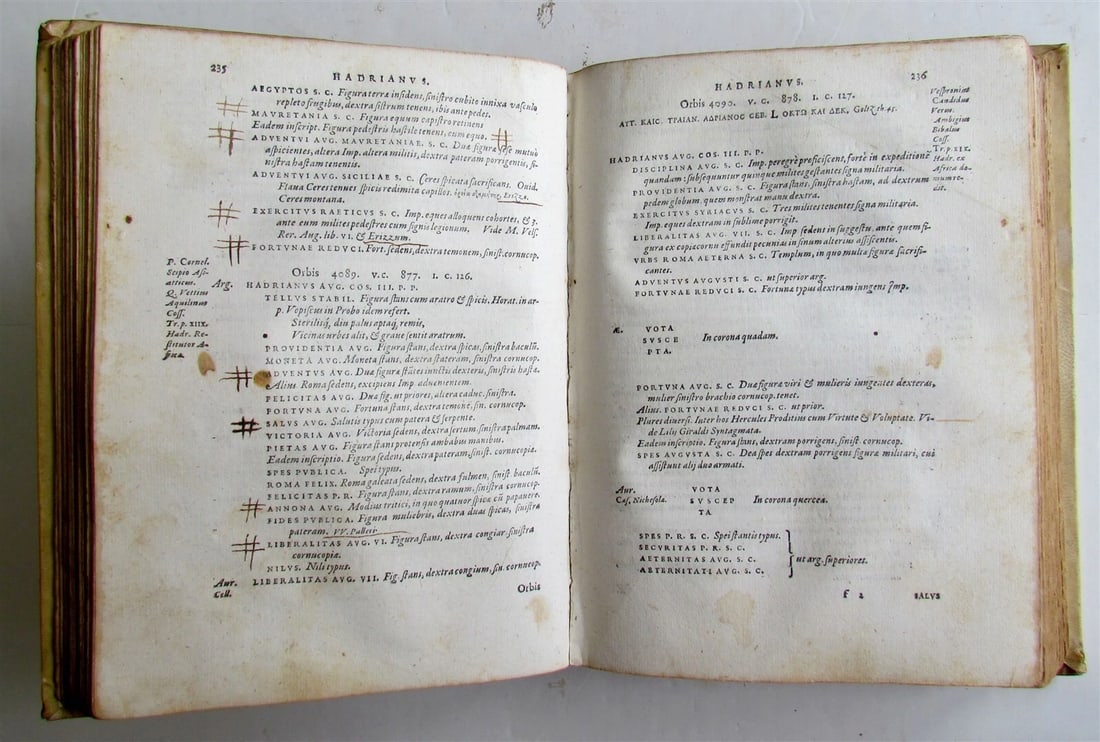 235
HADRIANVS.
AEGYPTOS S. C. Figura terræ insidens, sinistro cubito innixa vasculo
repleto frugibus, dextra sistrum tenens, ibis ante pedes.
MAVRETANIA S. C. Figura equum capistro retinens
Eadem inscript. Figura pedistris hastile tenens, cum equo.
ADVENTVI AVG. MAVRETANIAE. S. C. Duæ figuræ se mutuò
aspicientes, altera Imp. altera militis, dextra pateram porrigentis, si-
nistra hastam tenentis.
ADVENTVI AVG. SICILIAE S. C. Ceres spicata sacrificans. Ouid.
Flaua Ceres tenues spicis redimita capillos. Erizzo.
Ceres montana.
EXERCITVS RAETICVS S. C. Imp. eques alloquens cohortes, & 3.
ante eum milites pedestres cum signis legionum. Vide M. Vels.
Rer. Aug. lib. VI. & Erizzum.
FORTVNAE REDVCI. Fort. sedens, dextra temonem, sinist. cornucop.
P. Cornel.
Scipio Asi-
aticus.
Q. Vettius
Aquilinus
Coss.
Tr. p. XIIX.
Hadr. Re-
stitutor A-
Orbis 4089. V.C. 877. I. C. 126.
Arg. HADRIANVS AVG. COS. III. P. P.
TELLVS STABIL. Figura stans cum aratro & spicis. Horat. in ar-
p. Vopiscus in Probo idem refert.
Sterilisq; diu palus aptaq; remis,
Vicinas urbes alit, & graue sentit aratrum.
PROVIDENTIA AVG. Figura stans, dextra spicas, sinistra baculũ.
MONETA AVG. Moneta stans, dextra stateram, sinistra cornucop.
ADVENTVS AVG. Duæ figuræ stãtes iunctis dexteris, sinistris hasta.
Alius. Roma sedens, excipiens Imp. aduenientem.
FELICITAS AVG. Duæ fig. ut priores, altera caduc. sinistra.
FORTVNA AVG. Fortuna stans, dextra temonẽ, sin. cornucop.
SALVS AVG. Salutis typus cum patera & serpente.
VICTORIA AVG. Victoria sedens, dextra sertum, sinistra palmam.
PIETAS AVG. Figura stans protensis ambabus manibus.
Eadem inscriptio. Figura sedens, dextra pateram, sinist. cornucopiæ.
SPES PVBLICA. Spei typus.
ROMA FELIX. Roma galeata sedens, dextra fulmen, sinist. baculũ.
FELICITAS P. R. Figura stans, dextra ramum, sinistra cornucop.
ANNONA AVG. Modius tritici, in quo quatuor spicæ cũ papauere.
FIDES PVBLICA. Figura muliebris, dextra duas spicas, sinistra
pateram.
LIBERALITAS AVG. VI. Figura stans, dextra congiar. sinistra
cornucopiæ.
NILVS. Nili typus.
Aur. LIBERALITAS AVG. VII. Fig. stans, dextra congium, sin. cornucop.
Coll.
Orbis
236
HADRIANVS.
Orbis 4090. V.C. 878. I. C. 127.
ΑΥΤ. ΚΑΙC. ΤΡΑΙΑΝ. ΑΔΡΙΑΝΟC CΕΒ. L ΟΚΤΩ ΚΑΙ ΔΕΚ. Goltz. th. 45.
Vespronius
Candidus
Verus.
Ambigius
Bibalus
Coss.
Tr. p. XIX.
Hadr. ex
Africa do-
mum re-
dit.
HADRIANVS AVG. COS. III. P. P.
DISCIPLINA AVG. S. C. Imp. peregrè proficiscens, fortè in expeditionẽ
quandam: subsequuntur quinque milites gestantes signa militaria.
PROVIDENTIA AVG. S. C. Figura stans, sinistra hastam, ad dextrum
pedem globum, quem monstrat manu dextra.
EXERCITVS SYRIACVS S. C. Tres milites tenentes signa militaria.
Imp. eques dextram in sublime porrigit.
LIBERALITAS AVG. VII. S. C. Imp sedens in suggestu, ante quem fi-
gura ex copiæ cornu effundit pecunias in sinum alterius assistentis.
VRBS ROMA AETERNA S. C. Templum, in quo multæ figuræ sacrifi-
cantes.
ADVENTVS AVGVSTI S. C. ut superior arg.
FORTVNAE REDVCI S. C. Fortunæ typus dextram iungens Imp.
Æ. VOTA
SVSCE In corona quadam.
PTA.
FORTVNA AVG. S. C. Duæ figuræ viri & mulieris iungentes dexteras,
mulier sinistro brachio cornucop. tenet.
Alius. FORTVNAE REDVCI S. C. ut prior.
Plures diuersi. Inter hos Hercules Proditius cum Virtute & Voluptate. Vi-
de Lilij Giraldi Syntagmata.
Eadem inscriptio. Figura stans, dextram porrigens, sinist. cornucop.
SPES AVGVSTA S. C. Dea spes dextram porrigens figuræ militari, cui
assistunt alij duo armati.
Aur. VOTA
Cas. Nichesola. SVSCEP In corona quercea.
TA
SPES P. R. S. C. Spei stantis typus.
SECVRITAS P. R. S. C.
AETERNITAS AVG. S. C. ut arg. superiores.
AETERNITATI AVG. S. C.
f 2 SALVS